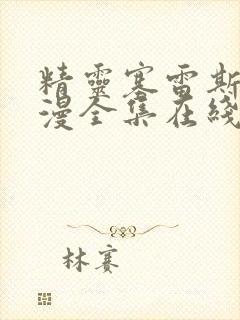 精靈塞雷斯
漫全集在綫
林賽